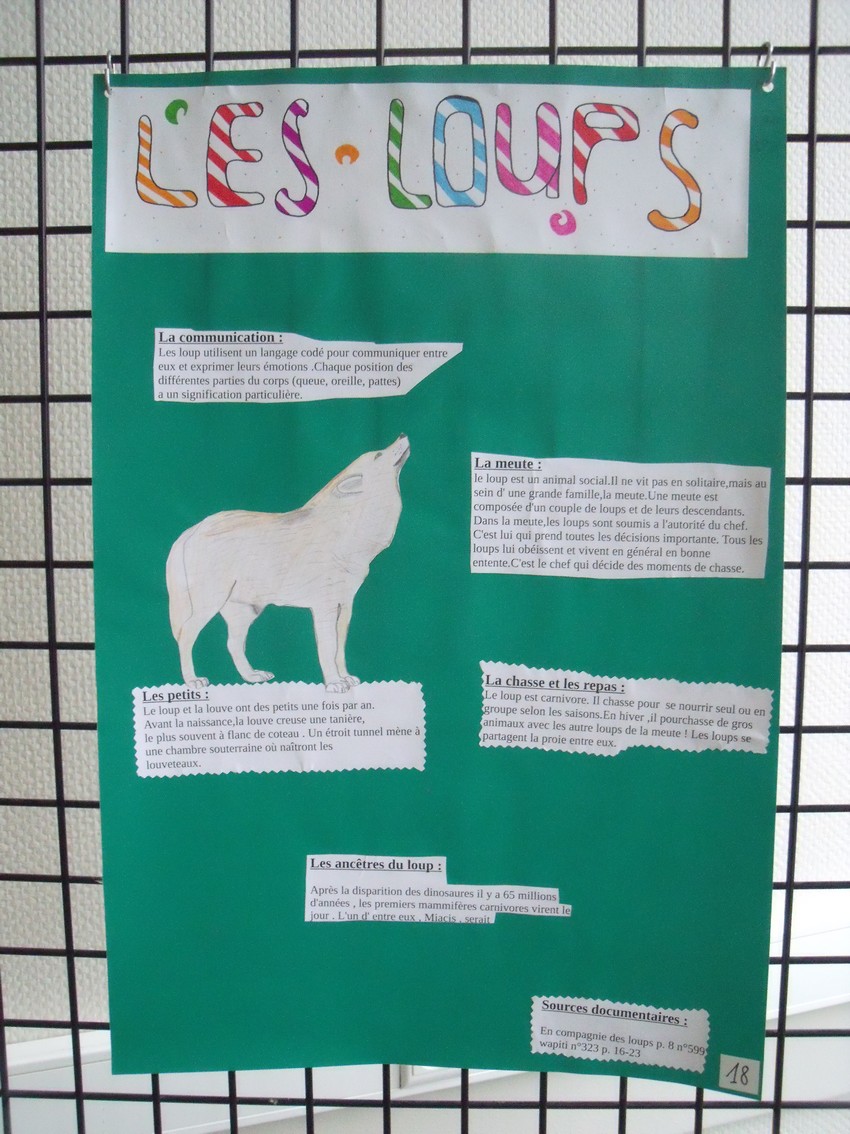 LES LOUPS
La communication :
Les loup utilisent un langage codé pour communiquer entre
eux et exprimer leurs émotions .Chaque position des
différentes parties du corps (queue, oreille, pattes)
a un signification particulière.
La meute :
le loup est un animal social.Il ne vit pas en solitaire,mais au
sein d' une grande famille,la meute.Une meute est
composée d'un couple de loups et de leurs descendants.
Dans la meute,les loups sont soumis a l'autorité du chef.
C'est lui qui prend toutes les décisions importante. Tous les
loups lui obéissent et vivent en général en bonne
entente.C'est le chef qui décide des moments de chasse.
Les petits :
Le loup et la louve ont des petits une fois par an.
Avant la naissance,la louve creuse une tanière,
le plus souvent à flanc de coteau . Un étroit tunnel mène à
une chambre souterraine où naîtront les
louveteaux.
La chasse et les repas :
Le loup est carnivore. Il chasse pour se nourrir seul ou en
groupe selon les saisons.En hiver ,il pourchasse de gros
animaux avec les autre loups de la meute ! Les loups se
partagent la proie entre eux.
Les ancêtres du loup :
Après la disparition des dinosaures il y a 65 millions
d'années , les premiers mammifères carnivores virent le
jour . L'un d' entre eux , Miacis , serait
Sources documentaires :
En compagnie des loups p. 8 n°599
wapiti n°323 p. 16-23
18